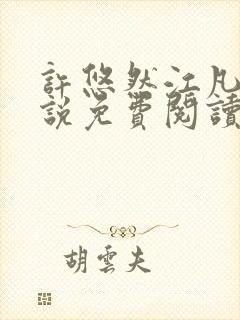 許悠然江凡
說免費閱讀
胡雲夫